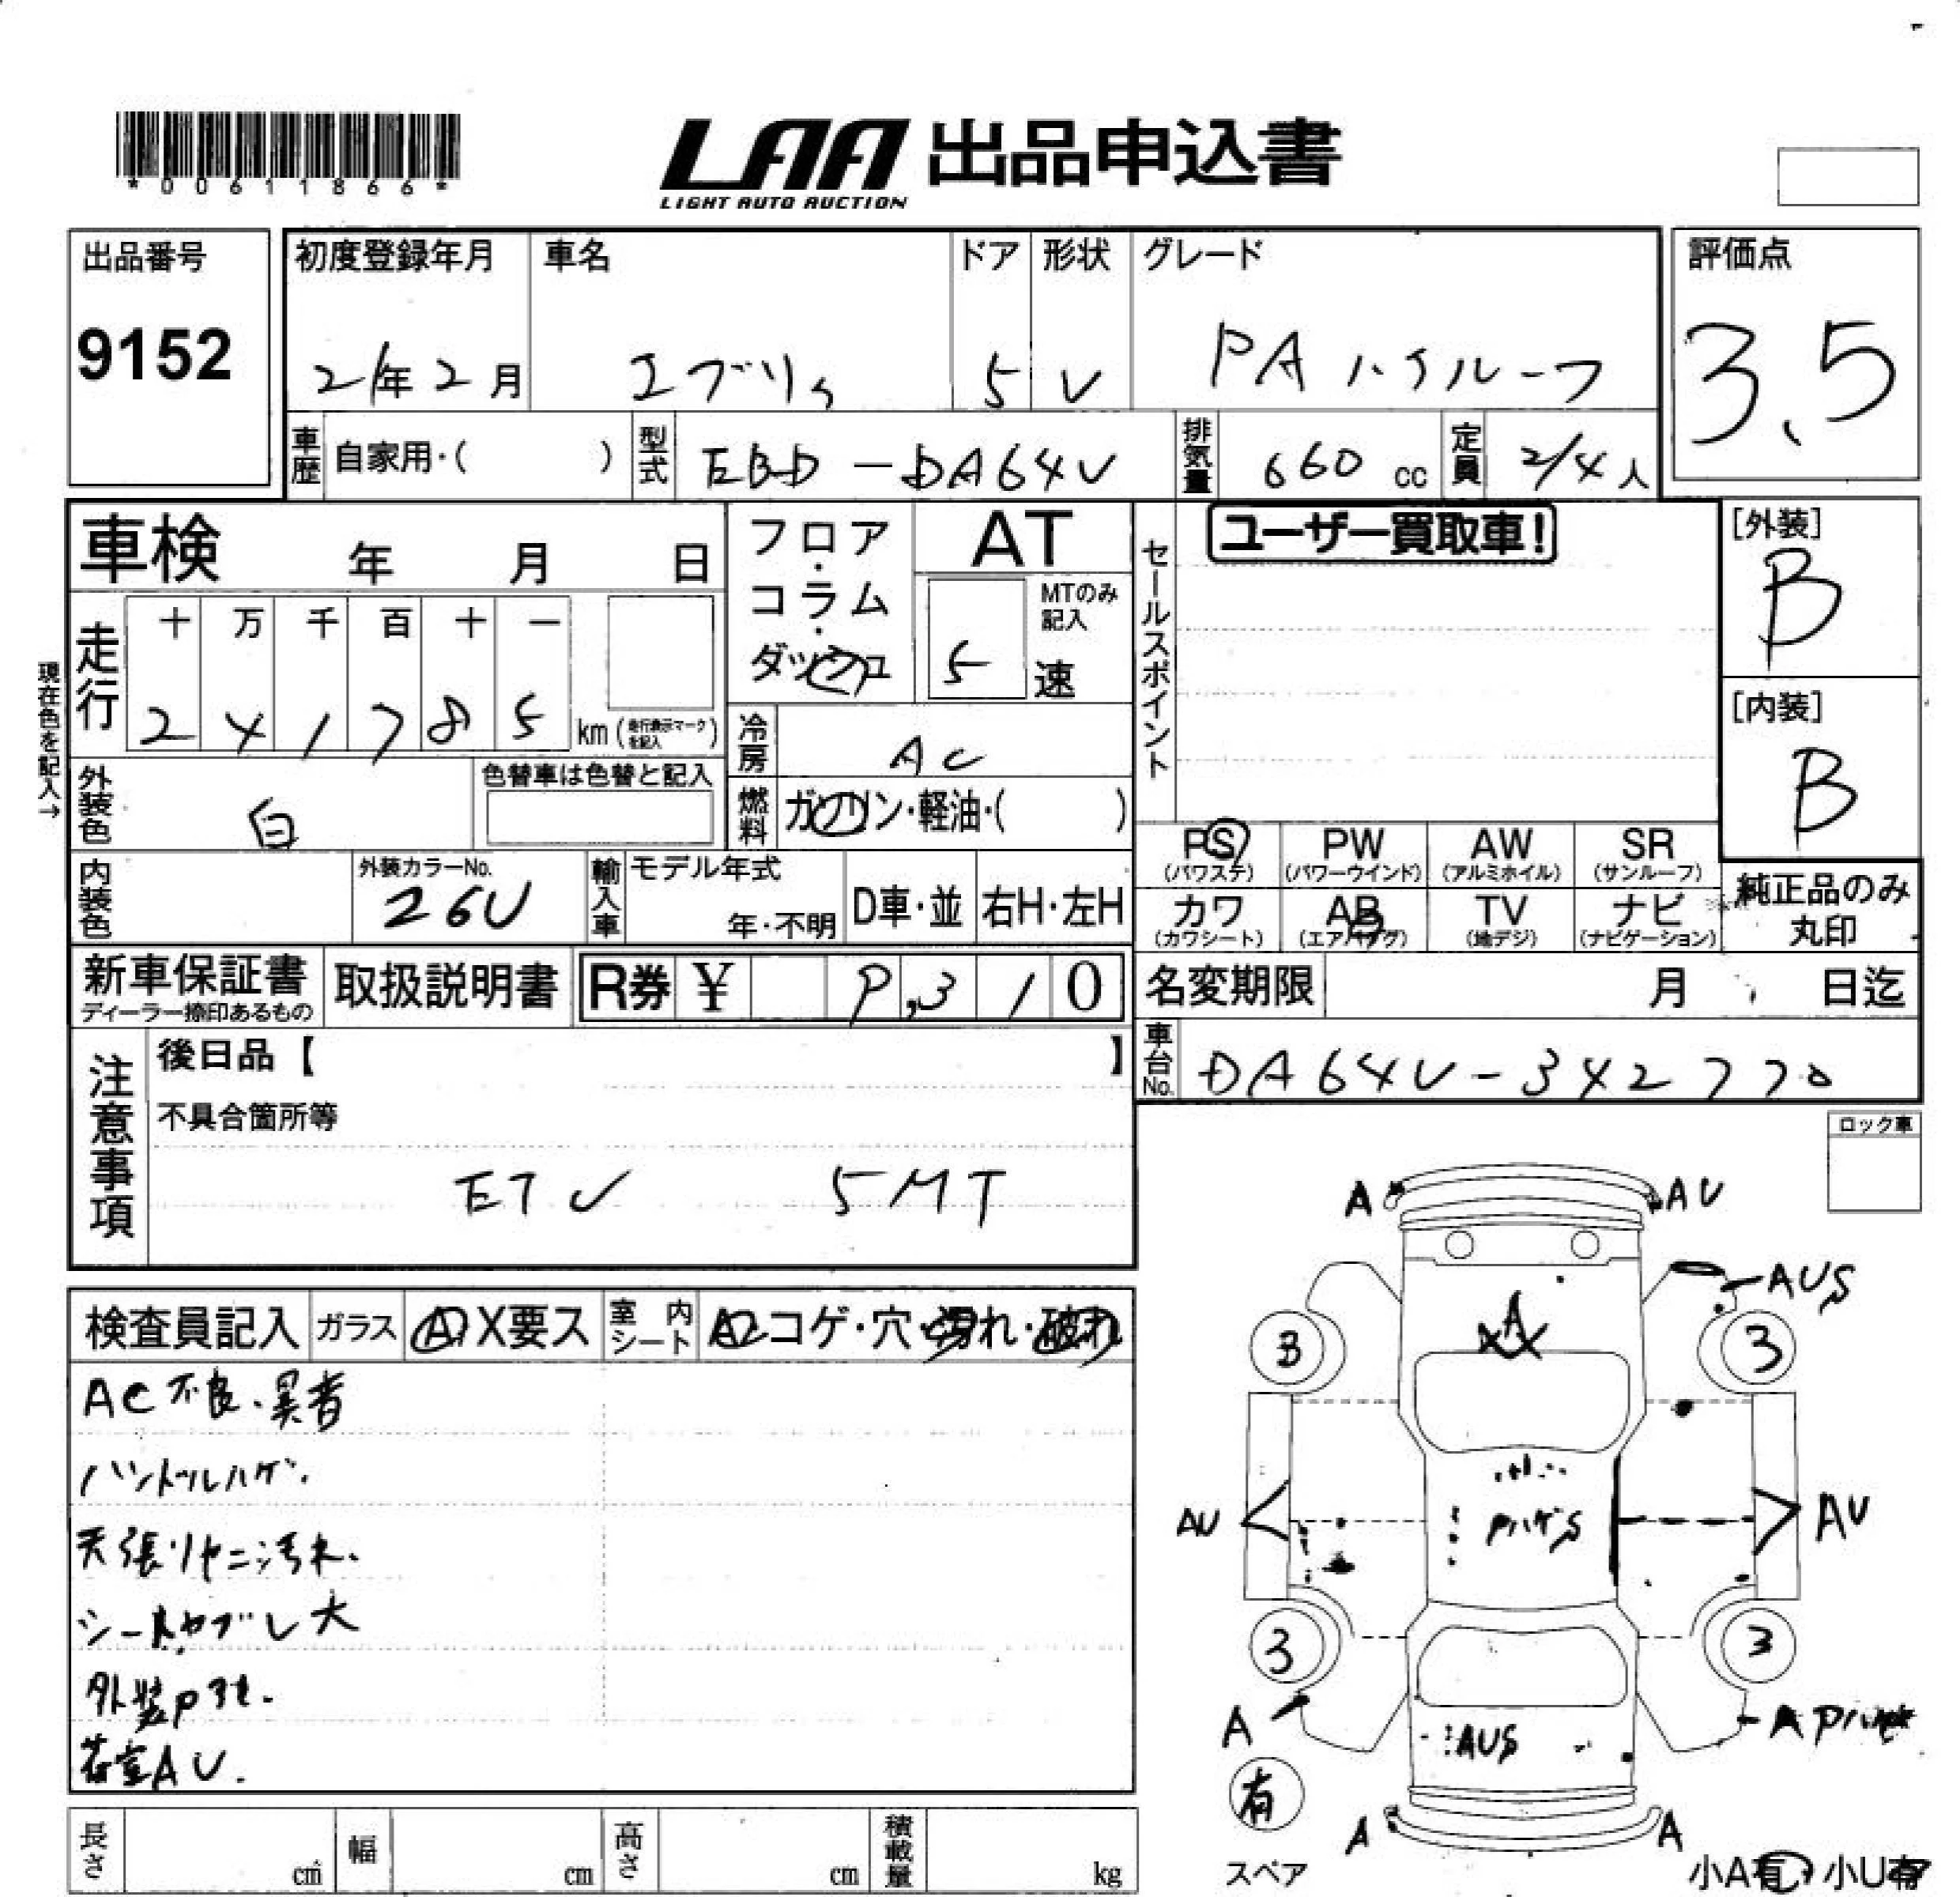 *00611866*
LAA 出品申込書
LIGHT AUTO AUCTION
出品番号
9152
初度登録年月 車名 ドア 形状 グレード
21年2月 エブリィ 5 V PA ハイルーフ
評価点
3.5
車歴 自家用・( ) 型式 EBD-DA64V 排気量 660 cc 定員 2/4人
車検 年 月 日
フロア・コラム・ダッシュ
AT
MTのみ記入
5 速
現在色を記入→
走行 十 万 千 百 十 一
241785 km (走行表示マークを記入)
冷房 AC
外装色 白
色替車は色替と記入
燃料 ガソリン・軽油・( )
内装色
外装カラーNo.
26U
輸入車 モデル年式 年・不明 D車・並 右H・左H
セールスポイント
ユーザー買取車!
[外装]
B
[内装]
B
PS PW AW SR
(パワステ) (パワーウインド) (アルミホイル) (サンルーフ)
カワ AB TV ナビ
(カワシート) (エアバッグ) (地デジ) (ナビゲーション)
純正品のみ丸印
新車保証書
ディーラー捺印あるもの
取扱説明書 R券 ¥ 9,310
名変期限 月 日迄
車台No. DA64V-342770
注意事項
後日品【 】
不具合箇所等
5MT
ロック車
検査員記入 ガラス A・X要ス 室内シート コゲ・穴・汚れ・破れ
AC不良、異音
ハンドルハゲ.
天張りヤニ汚れ.
シートヤブレ大
外装
荷室AU.
A AU
AUS
A
3 3
AU AU
PハゲS
3 3
A
A
AUS
有
スペア
A A
小A有 小U有
長さ cm 幅 cm 高さ cm 積載量 kg